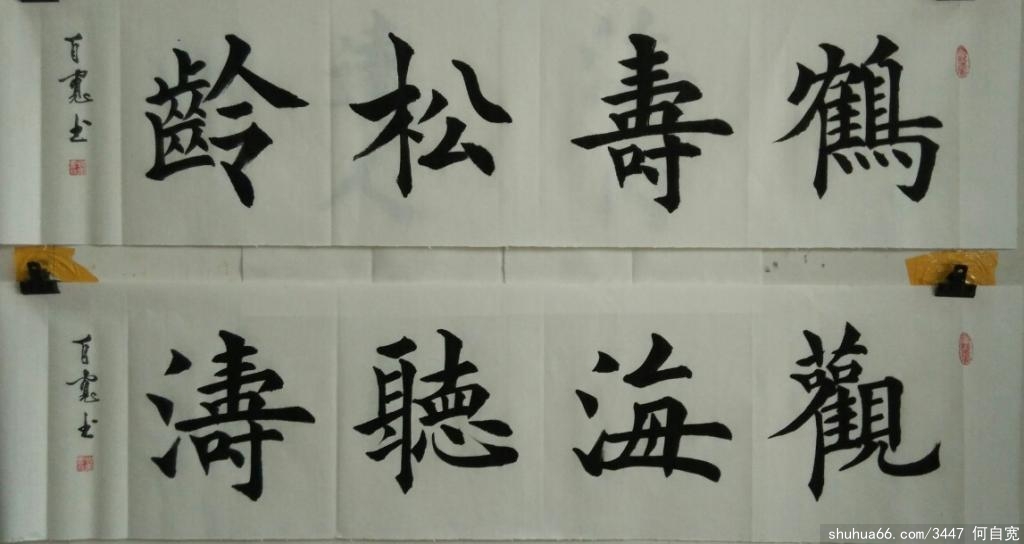 鶴壽松齡
自寬书
觀海聽濤
自寬书
shuhua66.com/3447 何自宽